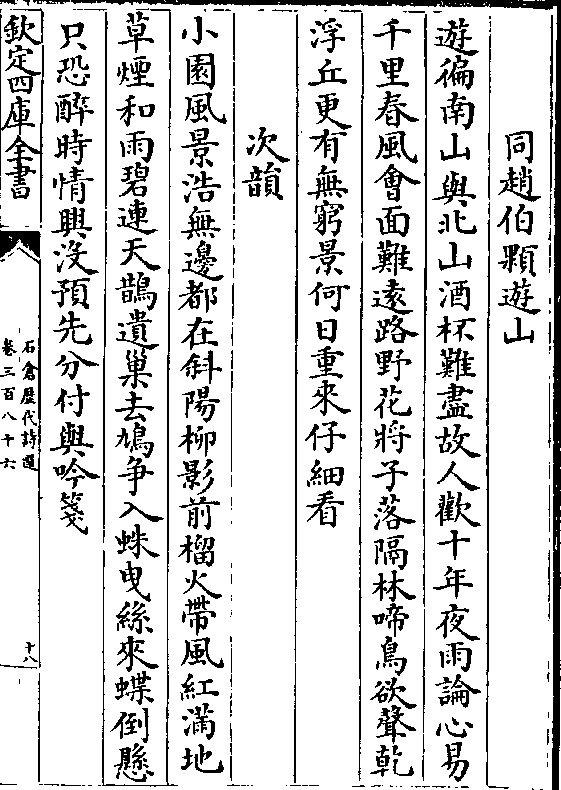 同趙伯顆遊山
遊徧南山與北山酒杯難盡故人歡十年夜雨論心易
千里春風會面難遶路野花將子落隔林啼鳥欲聲乾
浮丘更有無窮景何日重來仔細看
次韻
小園風景浩無邊都在斜陽柳影前榴火帶風紅滿地
草煙和雨碧連天鵲遺巢去鳩争入蛛曳絲來蝶倒懸
只恐醉時情興沒預先分付與吟箋
欽定四庫全書
石倉歷代詩選
卷三百八十六
十八